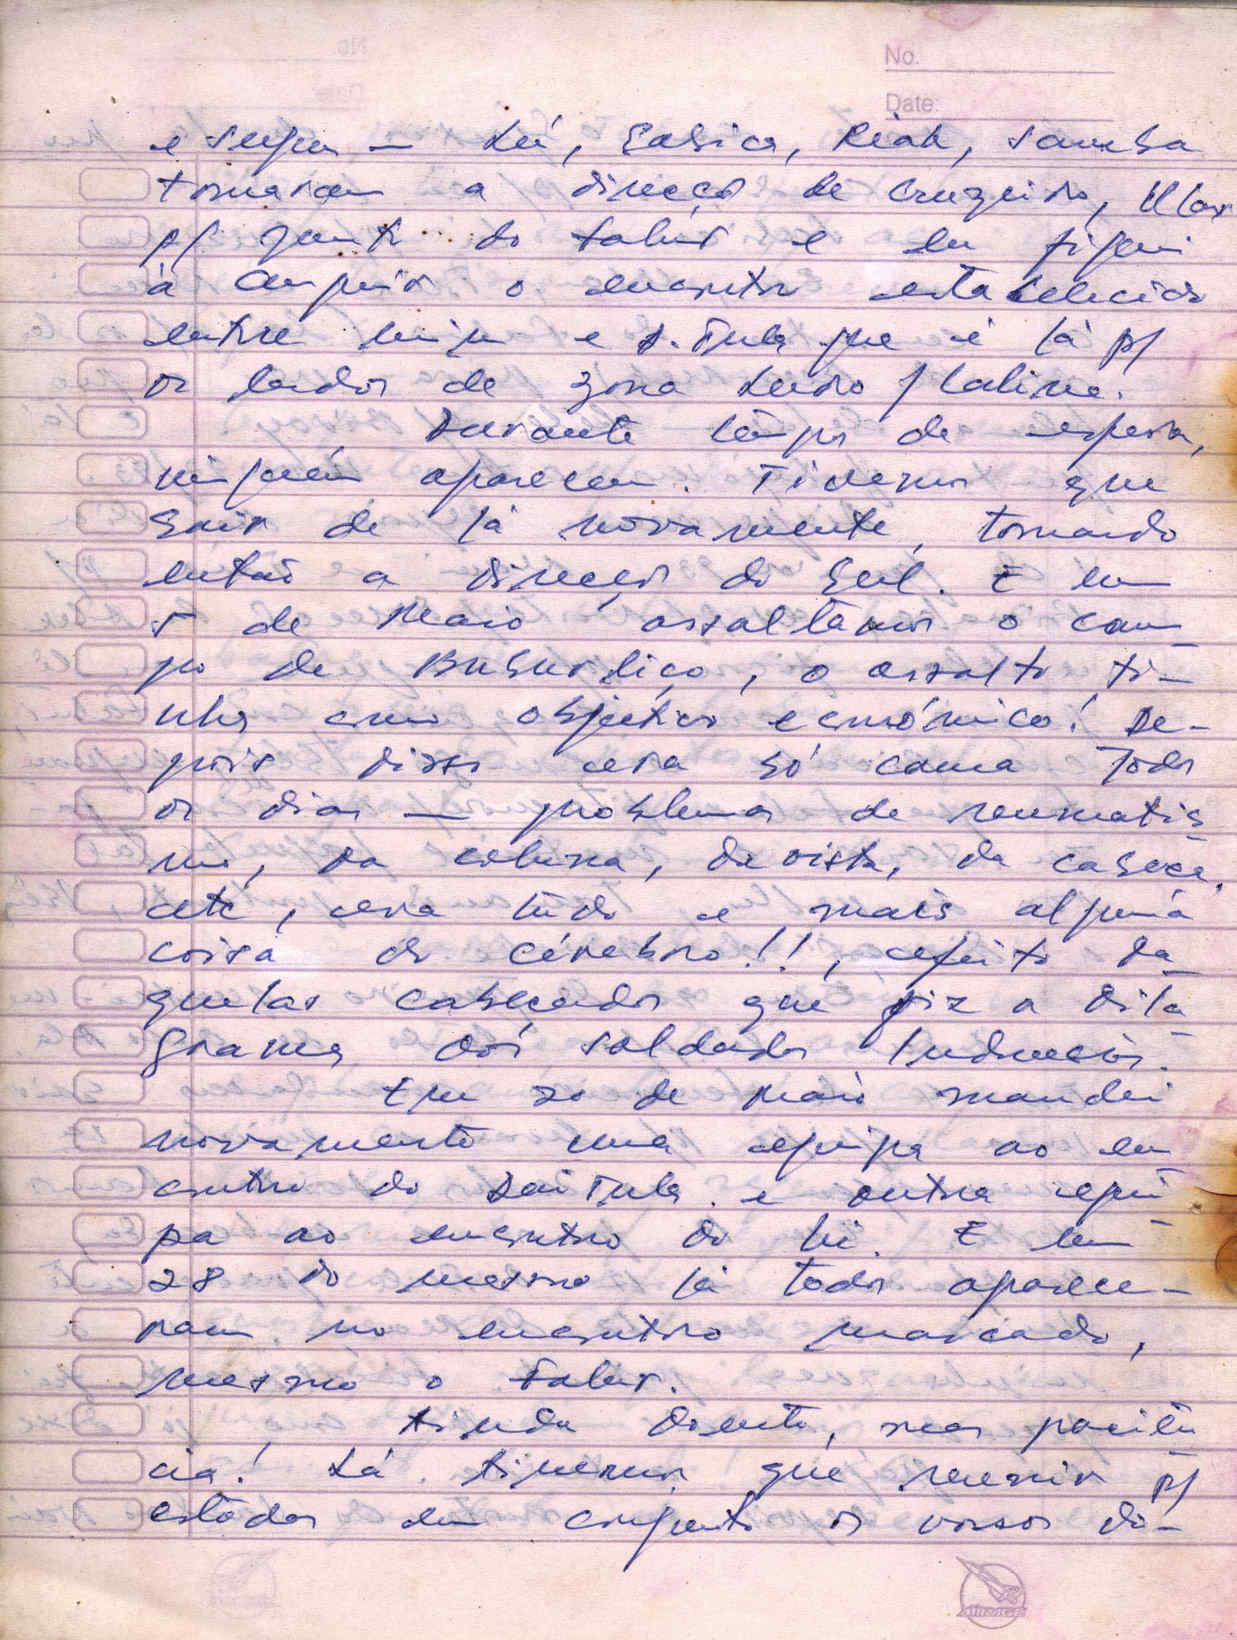 No.
Date:
e segui — Lú, Sabica, Riak, Samba
tomaram a direcção de Cruzeiro,
p/ junto do Fabur e eu fiquei
à cumprir o encontro estabelecido
entre mim e D. Tula que é lá p/
os lados de zona Ludo / Laline.
Durante tempo de espera,
ninguém apareceu. Tivemos que
sair de lá novamente, tomando
então a direcção do Sul. E em
5 de Maio assaltámos o cam-
po de Bubur Liço, o assalto ti-
nha como objectivo económico! De-
pois disso era só cama todos
os dias — problemas de reumatis-
mo, da coluna, da vista, da cabeça,
etc, era tudo e mais alguma
coisa do cérebro!!, efeito da-
quelas cabeçadas que fiz a dila-
grama dos soldados Indonésios.
Em 20 de Maio mandei
novamente uma equipa ao en-
contro do Dai Tula e outra equi-
pa ao encontro do Li. E em
28 do mesmo lá todos aparece-
ram no encontro marcado,
mesmo o Fabur.
Ainda doente, mas paciên-
cia! Lá tivemos que reunir p/
estudar em conjunto os vossos do-